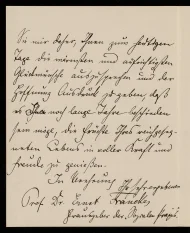 Sie mir daher, Ihnen zum heutigen
Tage die wärmsten und aufrichtigsten
Glückwünsche auszusprechen und der
Hoffnung Ausdruck zu geben, daß
es Ihnen noch lange Jahre beschieden
sein möge, die Früchte Ihres
Lebens in voller Kraft und
Freude zu genießen.
In Verehrung Ihr
Prof. Dr. Ernst Francke,
Herausgeber der Sozialen Praxis.